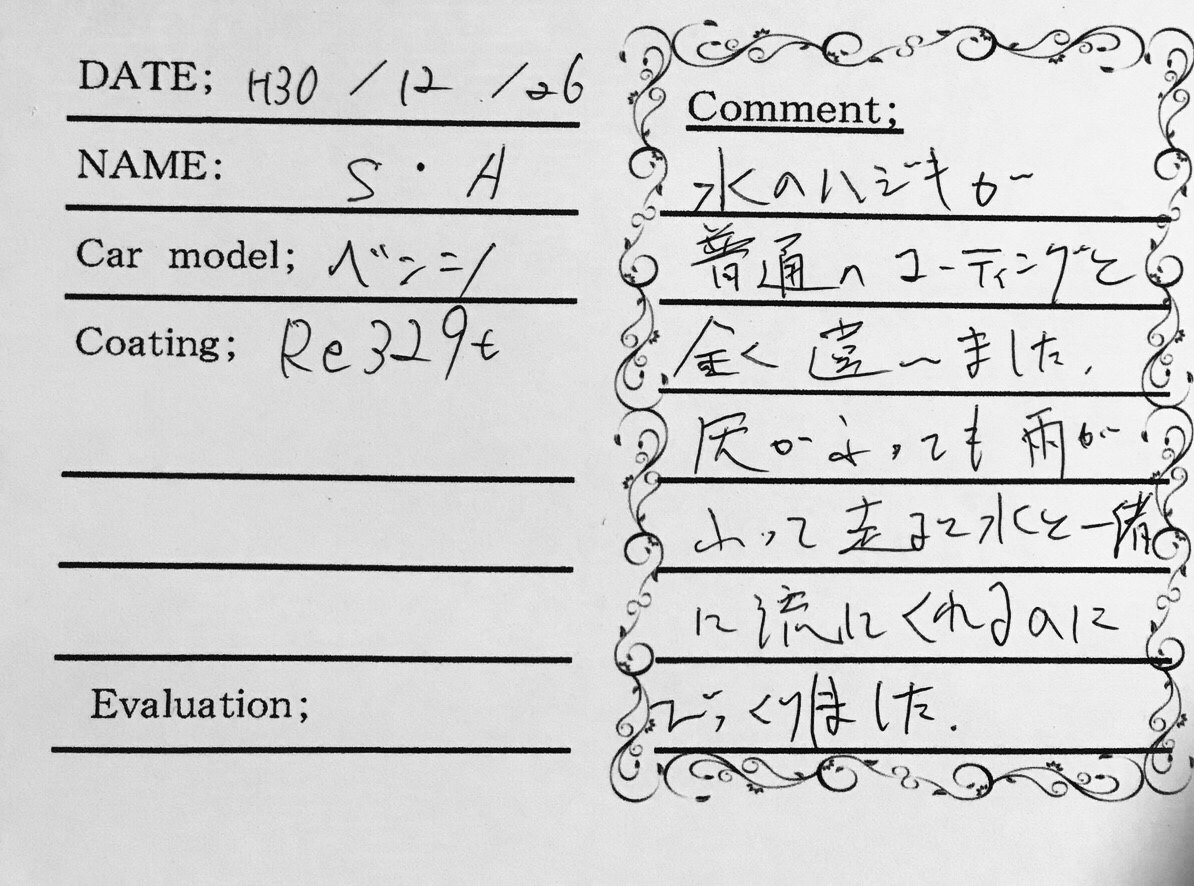 DATE; H30 / 12 / 26
NAME: S・A
Car model; ベンツ
Coating; Re329t
Evaluation;
Comment;
水のハジキが
普通のコーティングと
全く違いました.
灰がよっても雨が
ふって走ると水と一緒
に流にくれるのに
びっくりました.